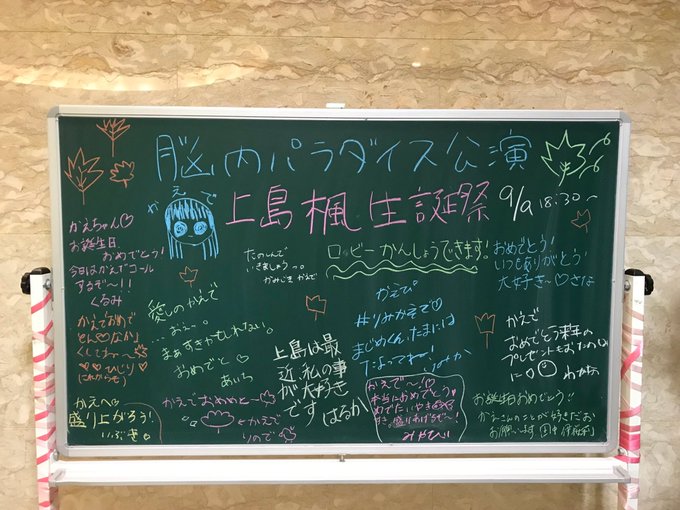 脳内パラダイス公演
かえで
上島楓生誕祭
9/9 18:30~
かえちゃん♡
お誕生日
おめでとう!
今日はかえでコール
するぞ~!!
くるみ
たのしんで
いきましょうっ。
かみじまかえで
ロッビーかんしょうできます!
おめでとう!
いつもありがとう
大好き~♡さな
愛しのかえで
...おぇ~。
まぁすきかもしれない。
おめでと♡
あいち
かえでおめで
とん♡なか」
ひじり
(これからも)
かえぴ
#りみかえで♡
まじめくん、たまには
なよってねー!
かえで
おめでとう来年の
プレゼントも
に♡
わかな
上島は最
近、私の事
が大好き
です はるか
かえで~♡
本当におめでとう
めでたいやき
みやび
かえへ
盛り上がろう!
いぶき
かえでおめめと~
#かえで
りので
お誕生日おめでとう!!
かえでさんのことが好きだお
お願いします